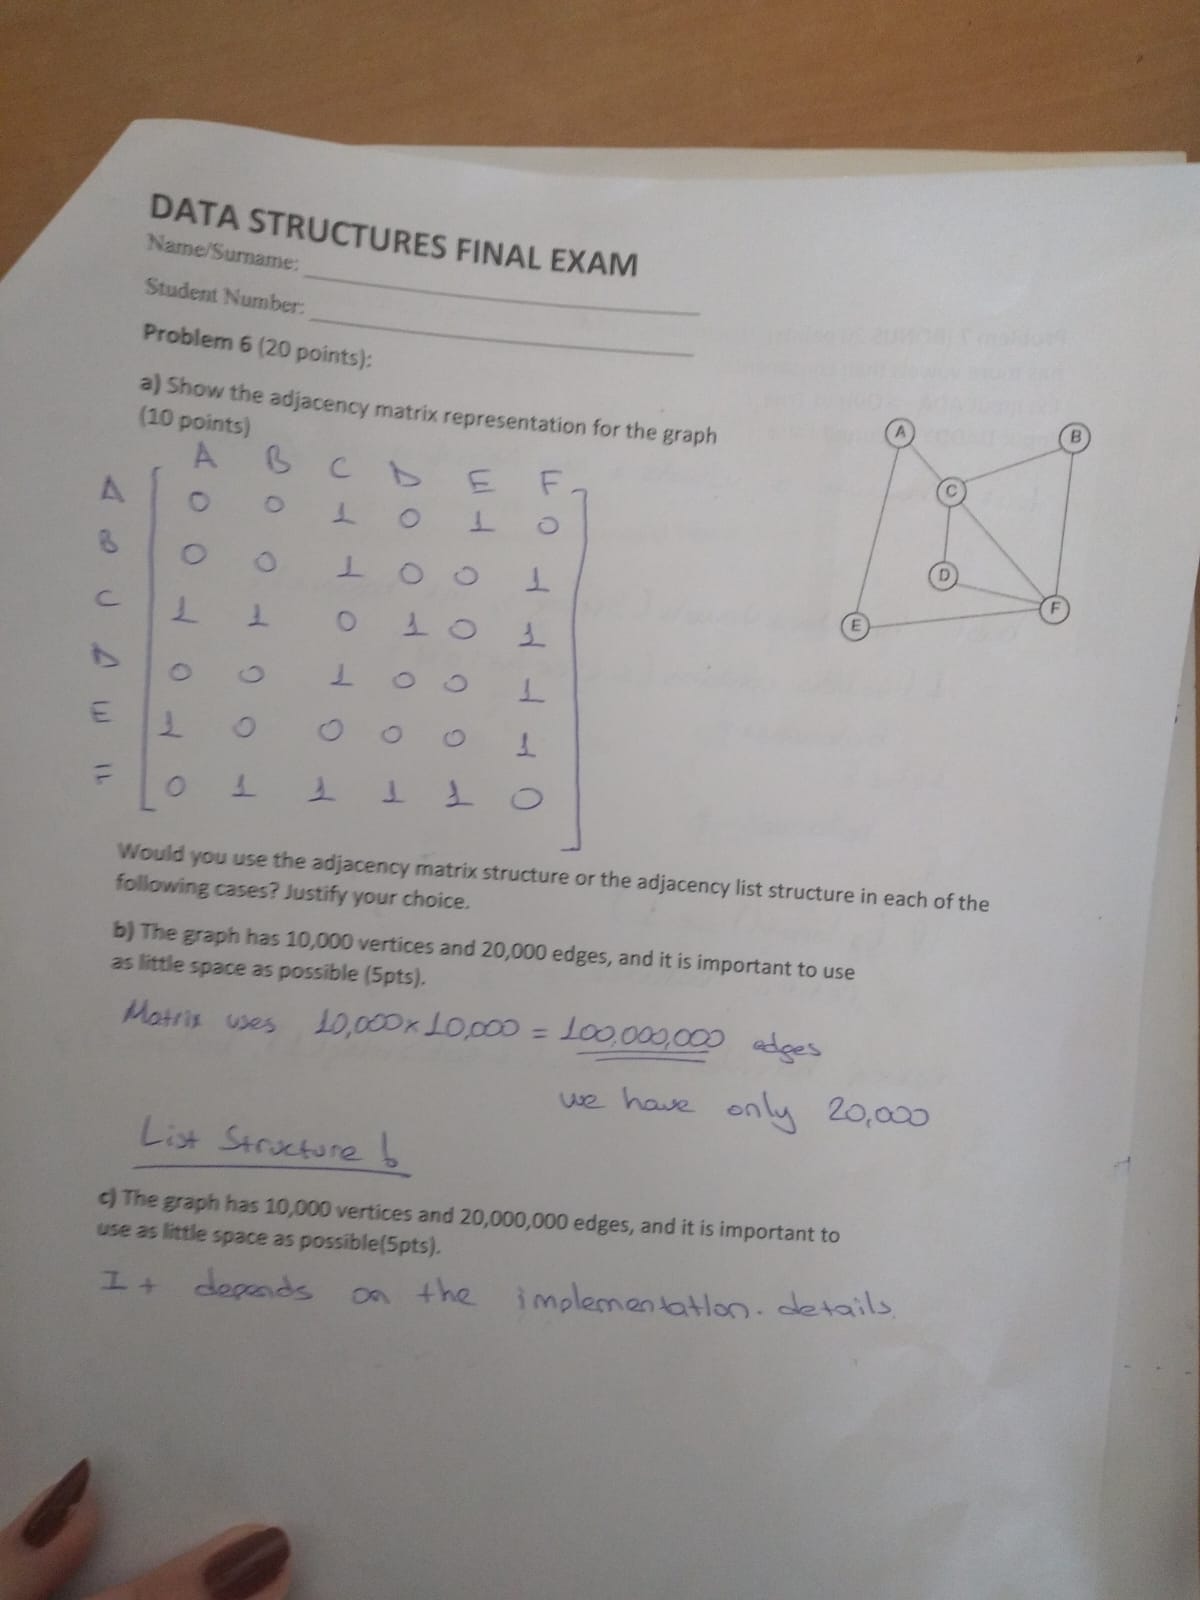 DATA STRUCTURES FINAL EXAM
Name/Surname:
Student Number:
Problem 6 (20 points):
a) Show the adjacency matrix representation for the graph
(10 points)
A B C D E F
A 0 0 1 0 1 0
B 0 0 1 0 0 1
C 1 1 0 1 0 1
D 0 0 1 0 0 1
E 1 0 0 0 0 1
F 0 1 1 1 1 0
A
B
C
D
E
F
Would you use the adjacency matrix structure or the adjacency list structure in each of the
following cases? Justify your choice.
b) The graph has 10,000 vertices and 20,000 edges, and it is important to use
as little space as possible (5pts).
Matrix uses 10,000x10,000 = 100,000,000 edges
we have only 20,000
List Structure
c) The graph has 10,000 vertices and 20,000,000 edges, and it is important to
use as little space as possible(5pts).
It depends on the implementation. details.